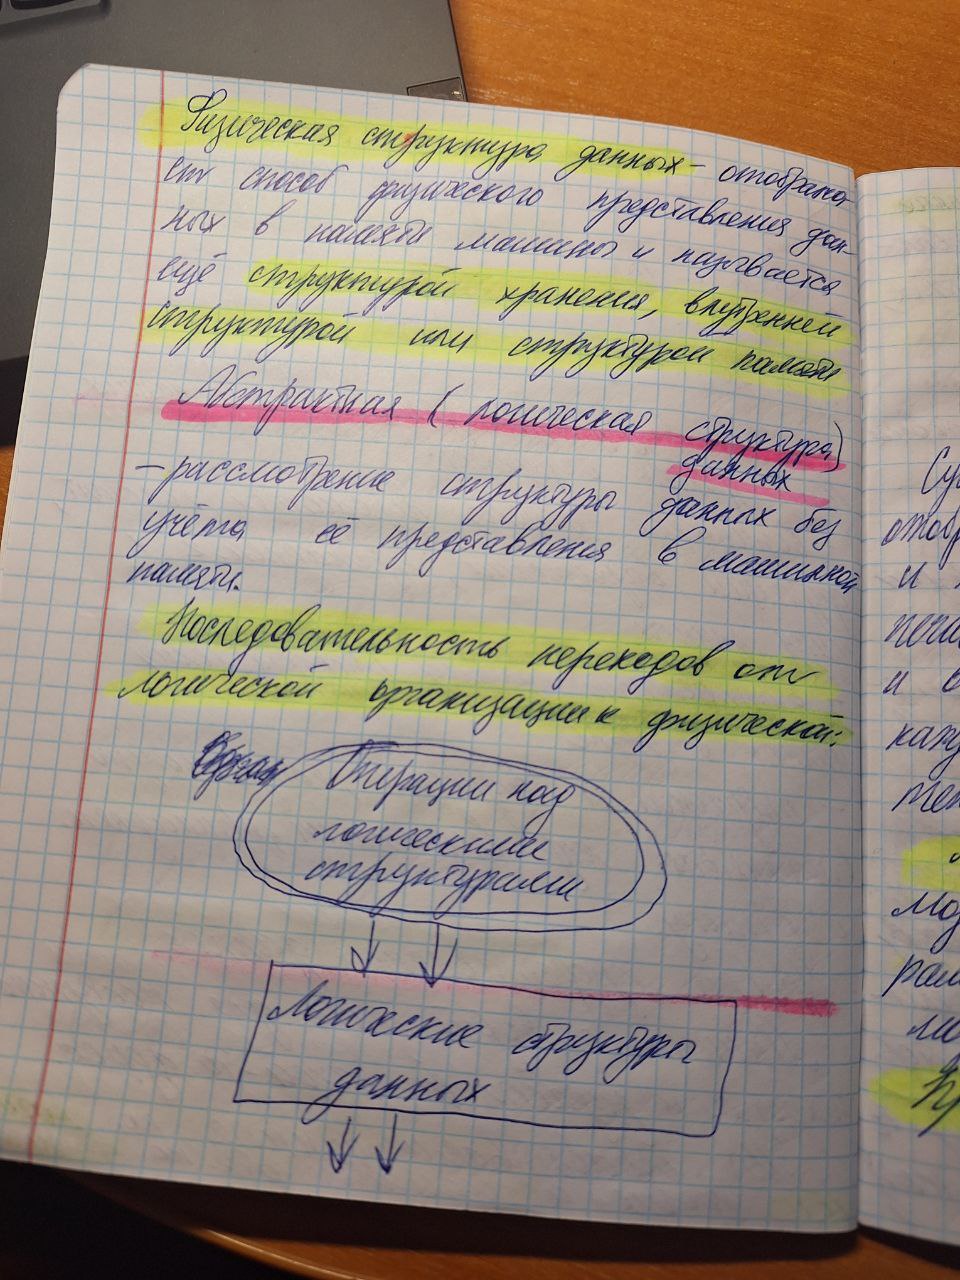 Физическая структура данных – отобража
ет способ физического представления дан-
ных в памяти машины и называется
ещё структурой хранения, внутренней
структурой или структурой памяти
Абстрактная (логическая структура)
данных
– рассмотрение структуры данных без
учёта её представления в машинной
памяти.
Последовательность переходов от
логической организации к физической:
Операции над
логическими
структурами
Логические структуры
данных
и
и